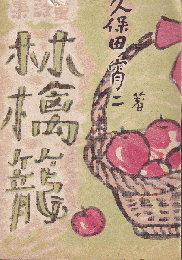 童謡集
林檎籠
久保田宵二著